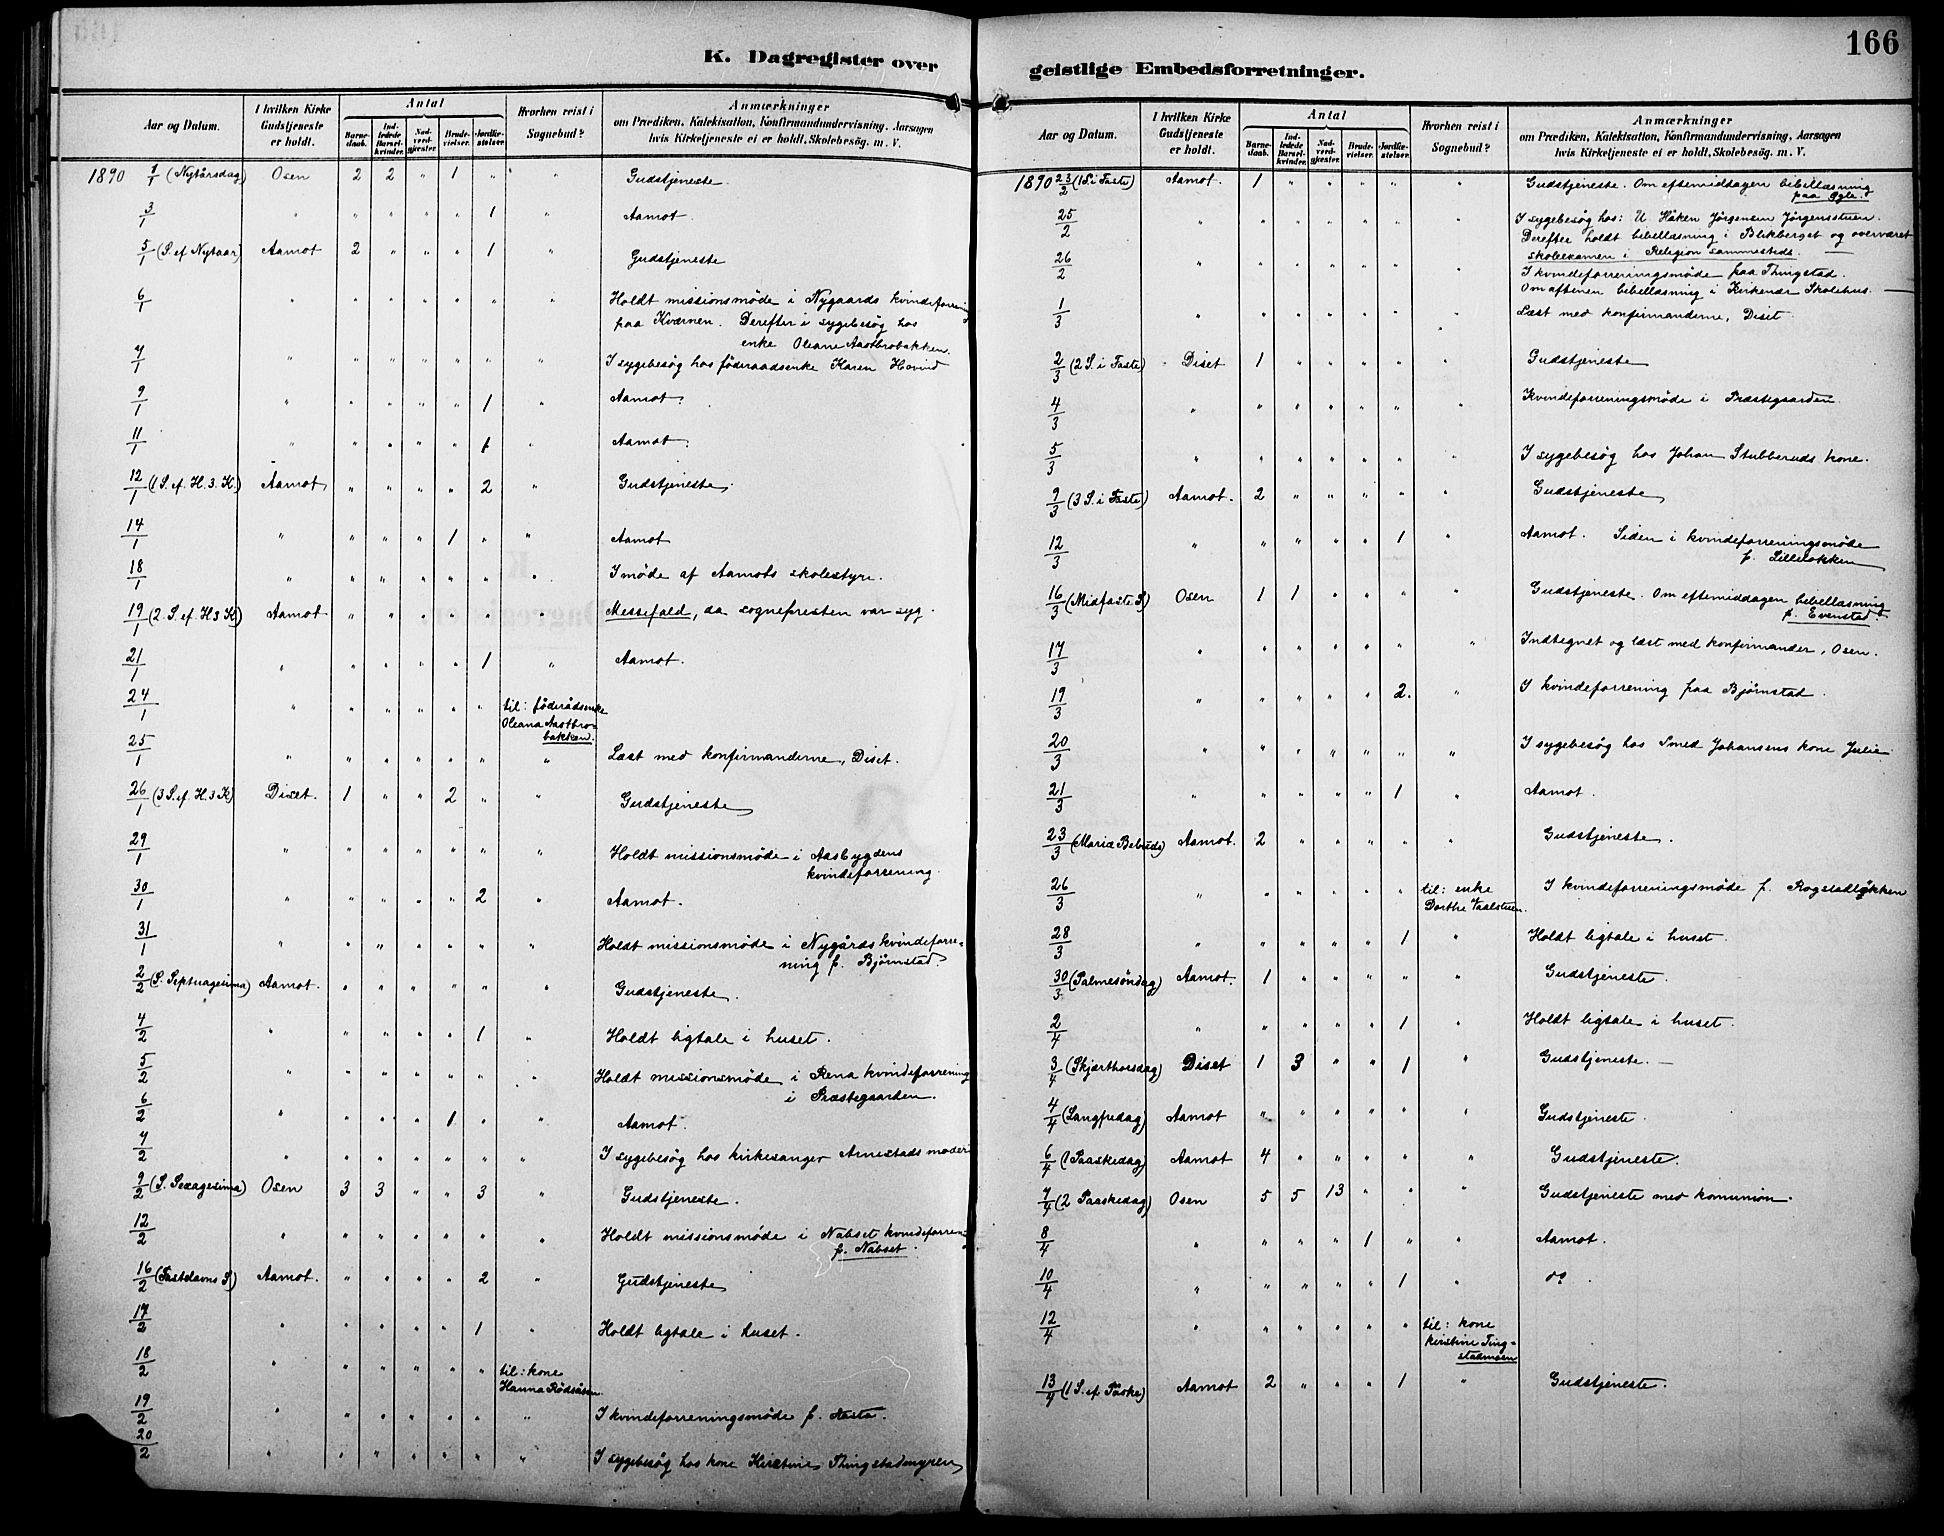 166
K. Dagregister over geistlige Embedsforretninger.
Aar og Datum.
I hvilken Kirke Gudstjeneste er holdt.
Antal
Barnedaab.
Indledede Barselkvinder.
Nadverdgjester.
Brudevielser.
Jordfæstelser.
Hvorhen reist i Sognebud?
Anmærkninger
om Prædiken, Katekisation, Konfirmandundervisning, Aarsagen
hvis Kirketjeneste ei er holdt, Skolebesøg. m. V.
1890 1/1 (Nytårsdag) Osen 2 2 " 1 " " Gudstjeneste.
3/1 " " " " " 1 " Aamot.
5/1 (S. ef Nytaar) Aamot 2 " " " 1 " Gudstjeneste
6/1 " " " " " " " Holdt missionsmöde i Nygaards kvindeforening
paa Kværnen. Derefter i sygebesøg hos
enke Oleane Aastbrobakken.
7/1 " " " " " " " I sygebesøg hos föderaadsenke Karen Hovind
9/1 " " " " " 1 " Aamot.
11/1 " " " " " 1 " Aamot.
12/1 (1 S. ef. H. 3. K.) Aamot " " " " 2 " Gudstjeneste.
14/1 " " " " 1 " " Aamot
18/1 " " " " " " " I möde af Aamots skolestyre.
19/1 (2. S. ef. H 3 K) Aamot " " " " " " Messefald, da sognepresten var syg.
21/1 " " " " " 1 " Aamot.
24/1 " " " " " " til: föderådsenke
Oleana Aastbro-
bakken.
25/1 " " " " " " " Læst med konfirmanderne, Diset.
26/1 (3 S. ef. H. 3 K) Diset. 1 " " 2 " " Gudstjeneste
29/1 " " " " " " " Holdt missionsmöde i Aasbygdens
kvindeforening.
30/1 " " " " " 2 " Aamot.
31/1 " " " " " " " Holdt missionsmöde i Nygårds kvindefore-
ning p. Bjørnstad.
2/2 (S. Septuagesima) Aamot. " " " " " " Gudstjeneste.
4/2 " " " " " 1 " Holdt ligtale i huset.
5/2 " " " " " " " Holdt missionsmöde i Rena kvindeforening
i Præstegaarden.
6/2 " " " " 1 " " Aamot.
7/2 " " " " " " " I sygebesøg hos kirkesanger Arnestads moder
9/2 (S. Sexagesima) Osen 3 3 " " 3 " Gudstjeneste.
12/2 " " " " " " " Holdt missionsmöde i Nabset kvindeforen.
p. Nabset.
16/2 (Fastelavns S) Aamot. " " " " 2 " Gudstjeneste
17/2 " " " " " 1 " Holdt ligtale i huset.
18/2 " " " " " " til: kone
Hanna Rödsåsen
19/2 " " " " " " " I kvindeforeningsmöde p. Aasta.
20/2 " " " " " " " I sygebesøg hos kone Kirstine Thingstadmyren
Aar og Datum.
I hvilken Kirke Gudstjeneste er holdt.
Antal
Barnedaab.
Indledede Barselkvinder.
Nadverdgjester.
Brudevielser.
Jordfæstelser.
Hvorhen reist i Sognebud?
Anmærkninger
om Prædiken, Katekisation, Konfirmandundervisning, Aarsagen
hvis Kirketjeneste ei er holdt, Skolebesøg. m. V.
1890 23/2 (1 S. i Faste) Aamot. 1 " " " " " Gudstjeneste. Om eftemiddagen bibellæsning
paa Ygle.
25/2 " " " " " " " I sygebesøg hos: U Håken Jørgensen Jørgensstuen.
Derefter holdt bibellæsning i Blikberget og overværet
skoleexamen i Religion sammesteds.
26/2 " " " " " " " I kvindeforeningsmöde paa Thingstad.
Om aftenen bibellæsning i Kirkenær Skolehus.
1/3 " " " " " " " Læst med konfirmanderne, Diset
2/3 (2 S. i Faste) Diset 1 " " " " " Gudstjeneste
4/3 " " " " " " " Kvindeforeningsmöde i Præstegaarden
5/3 " " " " " " " I sygebesøg hos Johan Stubberuds kone.
9/3 (3 S. i Faste) Aamot. 2 " " " " " Gudstjeneste
12/3 " " " " " 1 " Aamot. Siden i kvindeforeningsmöde
p. Lilleløkken
16/3 (Midfaste S) Osen 1 1 " " " " Gudstjeneste. Om eftemiddagen bibellæsning
p. Evenstad.
17/3 " " " " " " " Indtegnet og læst med konfirmander, Osen.
19/3 " " " " " 2. " I kvindeforening paa Bjørnstad.
20/3 " " " " " " " I sygebesøg hos Smed Johansens kone Julie
21/3 " " " " " 1 " Aamot.
23/3 (Mariæ Bebud.) Aamot. 2 " " " " " Gudstjeneste.
26/3 " " " " " " til: enke
Dorthe Vaalstuen. I kvindeforeningsmöde p. Rogstadløkken
28/3 " " " " " 1 " Holdt ligtale i huset.
30/3 (Palmesöndag) Aamot. 1 " " " " " Gudstjeneste.
2/4 " " " " " 1 " Holdt ligtale i huset.
3/4 (Skjærthorsdag) Diset 1 3 " " 1 " Gudstjeneste. —
4/4 (Langfredag) Aamot " " " " " " Gudstjeneste.
6/4 (1 Paaskedag) Aamot 4 " " " " " Gudstjeneste.
7/4 (2 Paaskedag) Osen 5 5 13 " " " Gudstjeneste med komunion.
8/4 " " " " 1 " " Aamot.
10/4 " " " " " 1 " do.
12/4 " " " " " " til: kone
Kirstine Ting-
stadmoen
13/4 (1 S. ef. Påske) Aamot 2 " " " 1 " Gudstjeneste.